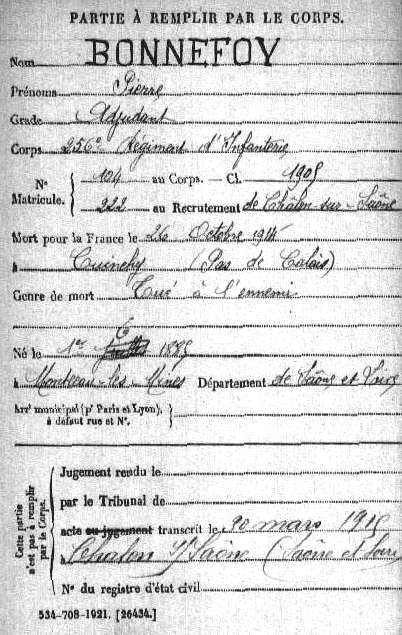 PARTIE À REMPLIR PAR LE CORPS.
Nom BONNEFOY
Prénoms Pierre
Grade Adjudant
Corps 256e Régiment d'Infanterie
N° Matricule. { 104 au Corps. — Cl. 1905
222 au Recrutement de Châlon-sur-Saône
Mort pour la France le 26 Octobre 1914
à Cuinchy (Pas de Calais)
Genre de mort Tué à l'ennemi
Né le 1er 1885
à Montceau-les-Mines Département de Saône et Loire
Arrt municipal (pr Paris et Lyon), à défaut rue et N°. }
Cette partie n'est pas à remplir par le Corps.
Jugement rendu le
par le Tribunal de
acte ou jugement transcrit le 20 mars 1915
Chalon s/ Saône (Saône et Loire
N° du registre d'état civil
534-708-1921. [26434.]